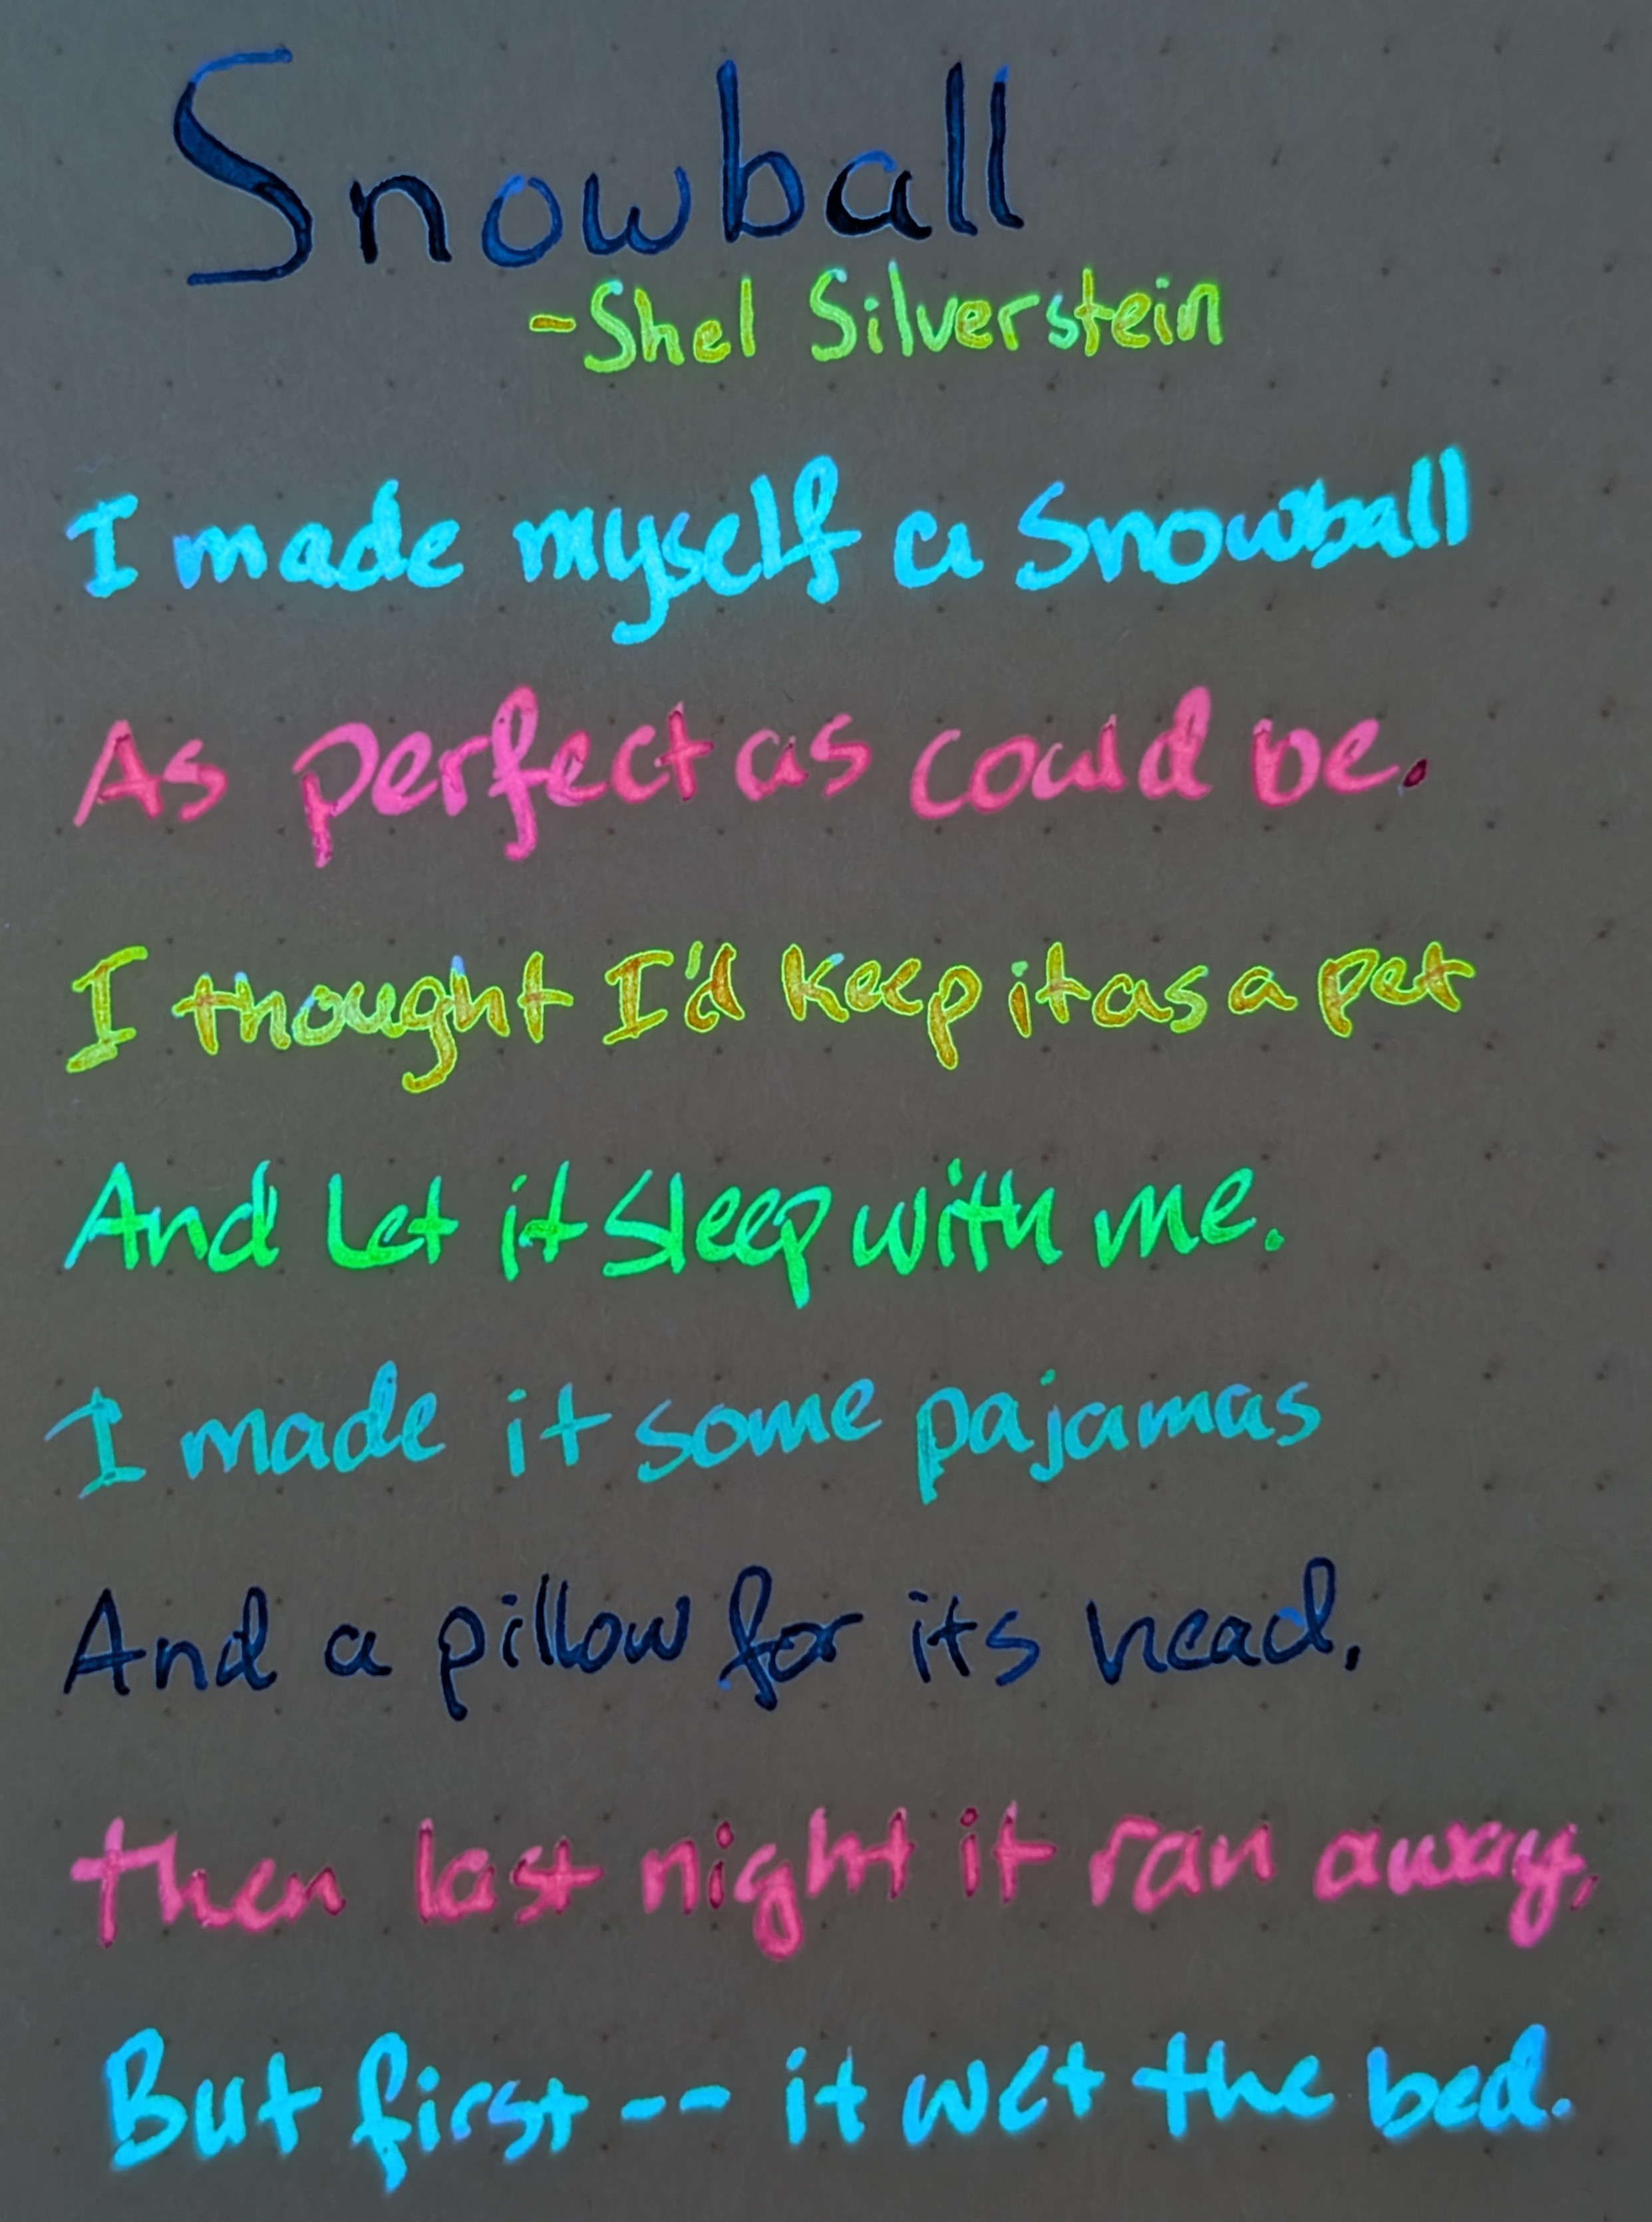 Snowball
-Shel Silverstein
I made myself a Snowball
As perfect as could be.
I thought I'd keep it as a pet
And Let it sleep with me.
I made it some pajamas
And a pillow for its head,
then last night it ran away,
But first -- it wet the bed.